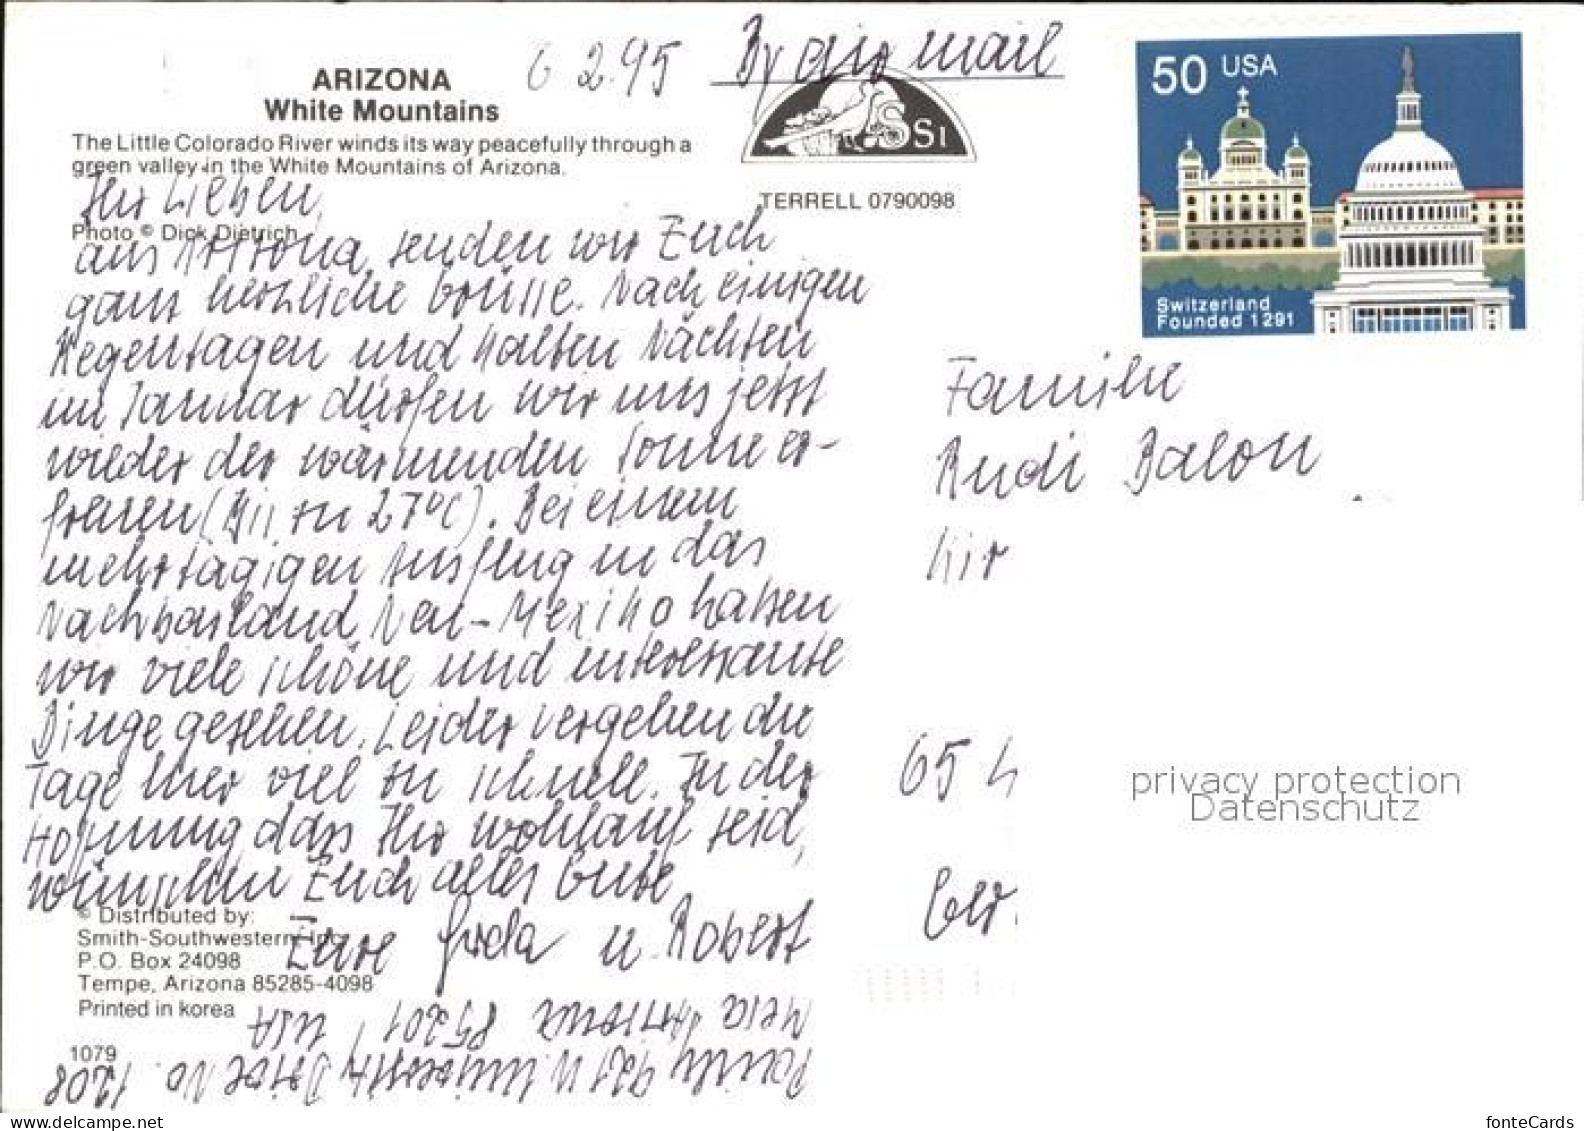 6 2.95
By air mail
ARIZONA
White Mountains
The Little Colorado River winds its way peacefully through a
green valley in the White Mountains of Arizona.
Photo © Dick Dietrich
SSI
TERRELL 0790098
50 USA
Switzerland
Founded 1291
Ihr Lieben,
aus Arizona senden wir Euch
ganz herzliche Grüsse. Nach einigen
Regentagen und kalten Nächten
im Januar dürfen wir uns jetzt
wieder der wärmenden Sonne er-
freuen (Bis zu 27°C). Bei einem
mehrtägigen Ausflug in das
Nachbarland Neu-Mexiko haben
wir viele schöne und interessante
Dinge gesehen. Leider vergehen die
Tage hier viel zu schnell. In der
Hoffnung dass Ihr wohlauf seid,
wünschen Euch alles Gute
Eure Gerda u. Robert
© Distributed by:
Smith-Southwestern, Inc.
P.O. Box 24098
Tempe, Arizona 85285-4098
Printed in korea
1079
921 N University Drive No. 1208
Mesa Arizona 85201, USA
Familie
Rudi Balon
Kir
65
privacy protection
Datenschutz
fonteCards